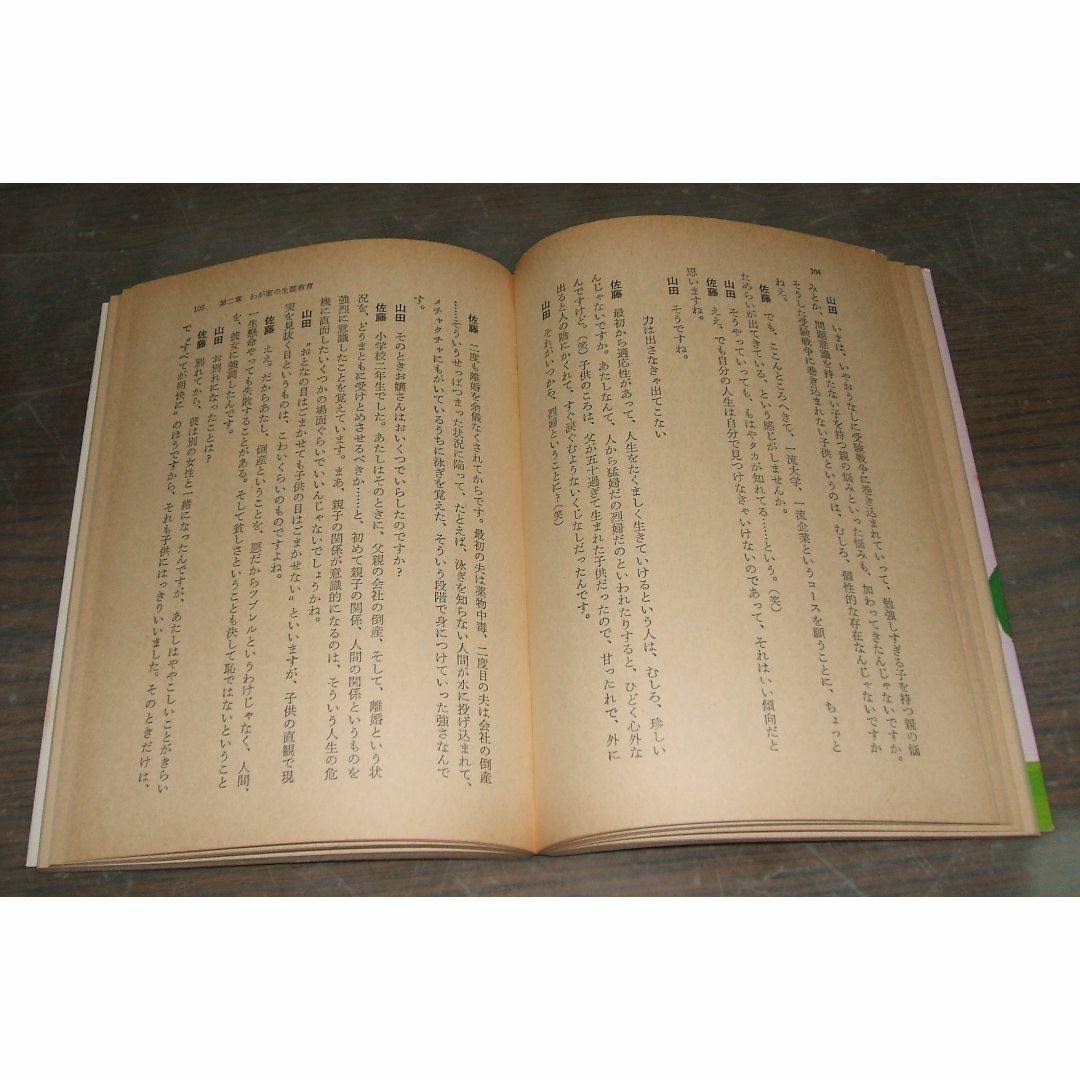 104
山田　いまは、いやおうなしに受験戦争に巻き込まれていって、勉強しすぎる子を持つ親の悩
みとか、問題意識を持たない子を持つ親の悩みといった悩みも、加わってきたんじゃないですか。
そうした受験戦争に巻き込まれない子供というのは、むしろ、個性的な存在なんじゃないですか
ねえ。
佐藤　でも、ここんところへきて、一流大学、一流企業というコースを願うことに、ちょっと
ためらいが出てきている、という感じがしませんか。
山田　そうやっていっても、もはやタカが知れてる……という。（笑）
佐藤　ええ。でも自分の人生は自分で見つけなきゃいけないのであって、それはいい傾向だと
思いますね。
山田　そうですね。
力は出さなきゃ出てこない
佐藤　最初から適応性があって、人生をたくましく生きていけるという人は、むしろ、珍しい
んじゃないですか。あたしなんて、人から猛婦だの烈婦だのといわれたりすると、ひどく心外な
んですけど。（笑）子供のころは、父が五十過ぎて生まれた子供だったので、甘ったれで、外に
出ると人の陰にかくれて、すぐ涙ぐむようないくじなしだったんです。
山田　それがいつから、烈婦ということに？（笑）
佐藤　二度も離婚を余儀なくされてからです。最初の夫は薬物中毒、二度目の夫は会社の倒産
……そういうせっぱつまった状況に陥って、たとえば、泳ぎを知らない人間が水に投げ込まれて、
メチャクチャにもがいているうちに泳ぎを覚えた、そういう段階で身につけていった強さなんで
す。
山田　そのときお嬢さんはおいくつでいらしたのですか？
佐藤　小学校二年生でした。あたしはそのときに、父親の会社の倒産、そして、離婚という状
況を、どうまともに受けとめさせるべきか……と、初めて親子の関係、人間の関係というものを
強烈に意識したことを覚えています。まあ、親子の関係が意識的になるのは、そういう人生の危
機に直面したいくつかの場面ぐらいでいいんじゃないでしょうかね。
山田　〝おとなの目はごまかせても子供の目はごまかせない〟といいますが、子供の直観で現
実を見抜く目というものは、こわいくらいのものですよね。
佐藤　ええ。だからあたし、倒産ということを、悪だからツブレルというわけじゃなく、人間、
一生懸命やっても失敗することがある。そして貧しさということも決して恥ではないということ
を、彼女に強調したんです。
山田　お別れになったことは？
佐藤　別れてから、彼は別の女性と一緒になったんですが、あたしはややこしいことがきらい
で〝すべてが明快に〟のほうですから、それも子供にはっきりいいました。そのときだけは、
105　第二章　わが家の生涯教育